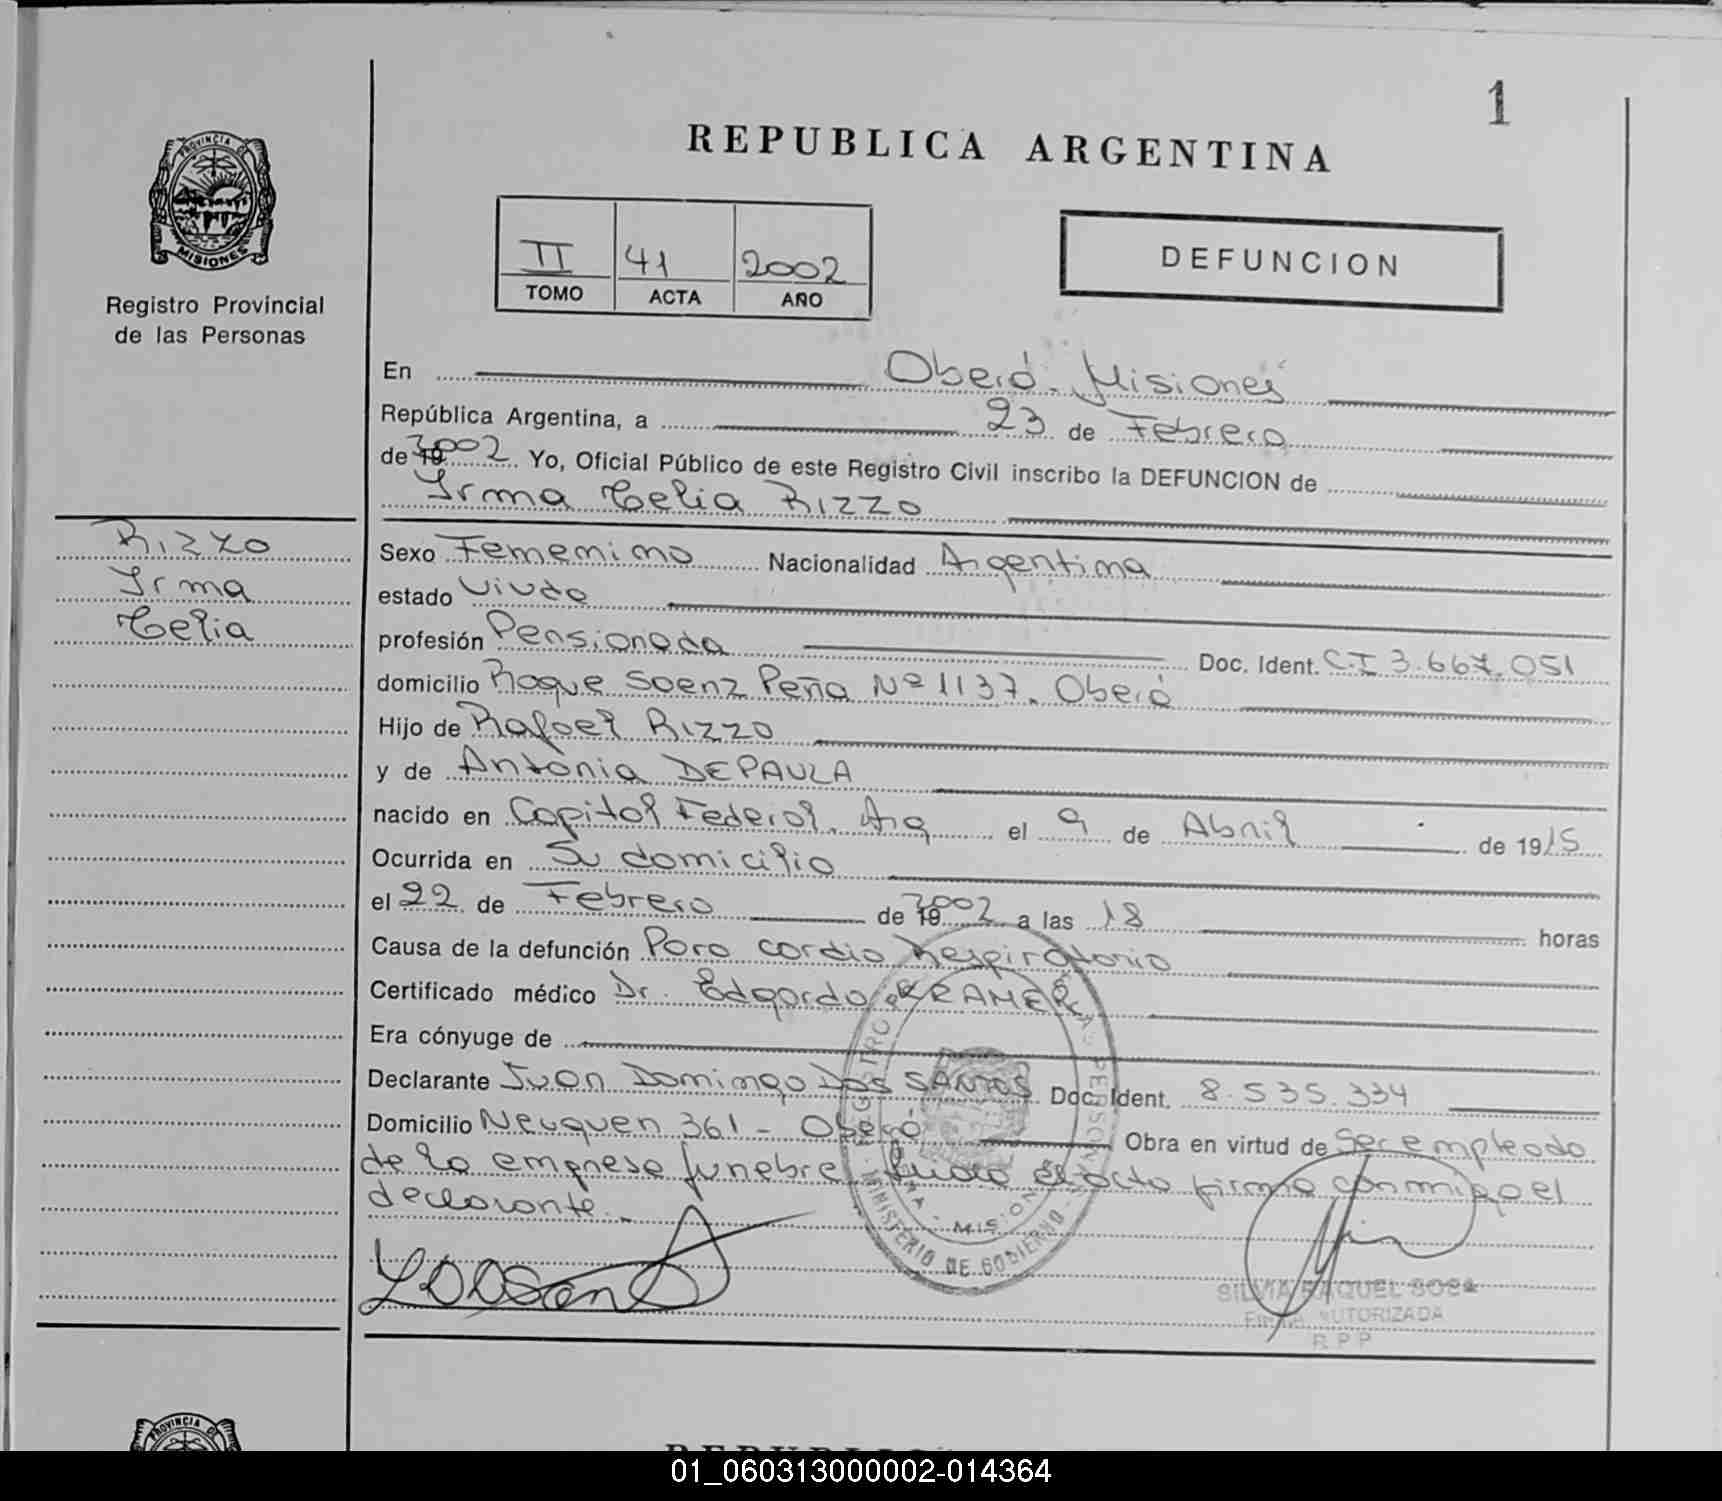 1
REPUBLICA ARGENTINA
PROVINCIA DE
MISIONES
Registro Provincial
de las Personas
II 41 2002
TOMO ACTA AÑO
DEFUNCION
En Oberá. Misiones
República Argentina, a 23 de Febrero
de 19 2002 Yo, Oficial Público de este Registro Civil inscribo la DEFUNCION de
Irma Celia RIZZO
Rizzo
Irma
Celia
Sexo Femenino Nacionalidad Argentina
estado Viuda
profesión Pensionada Doc. Ident. C.I 3.667.051
domicilio Roque Saenz Peña Nº 1137. Oberá
Hijo de Rafael RIZZO
y de Antonia DEPAULA
nacido en Capital Federal. Arg el 9 de Abril de 1915
Ocurrida en Su domicilio
el 22 de Febrero de 19 2002 a las 18 horas
Causa de la defunción Paro cardio Respiratorio
Certificado médico Dr. Edgardo KRAMER
Era cónyuge de
Declarante Juan Domingo Dos SANTOS Doc. Ident. 8.535.334
Domicilio Neuquen 361 - Oberá Obra en virtud de Ser empleado
de la empresa funebre. el acto firma conmigo el
declarante.
MINISTERIO DE GOBIERNO
SILVIA RAQUEL SOSA
FIRMA AUTORIZADA
R P P
PROVINCIA DE
01_060313000002-014364